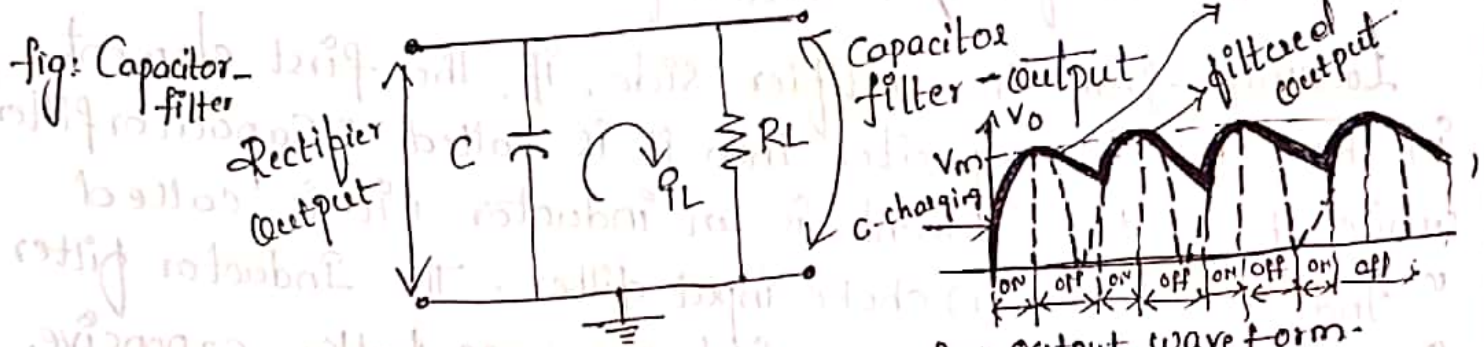 fig: Capacitor-
filter
Rectifier
Output
C
iL
RL
Capacitor
filter - output
filtered
output
Vo
Vm
C-charging
ON Off ON Off ON Off ON Off
output waveform.